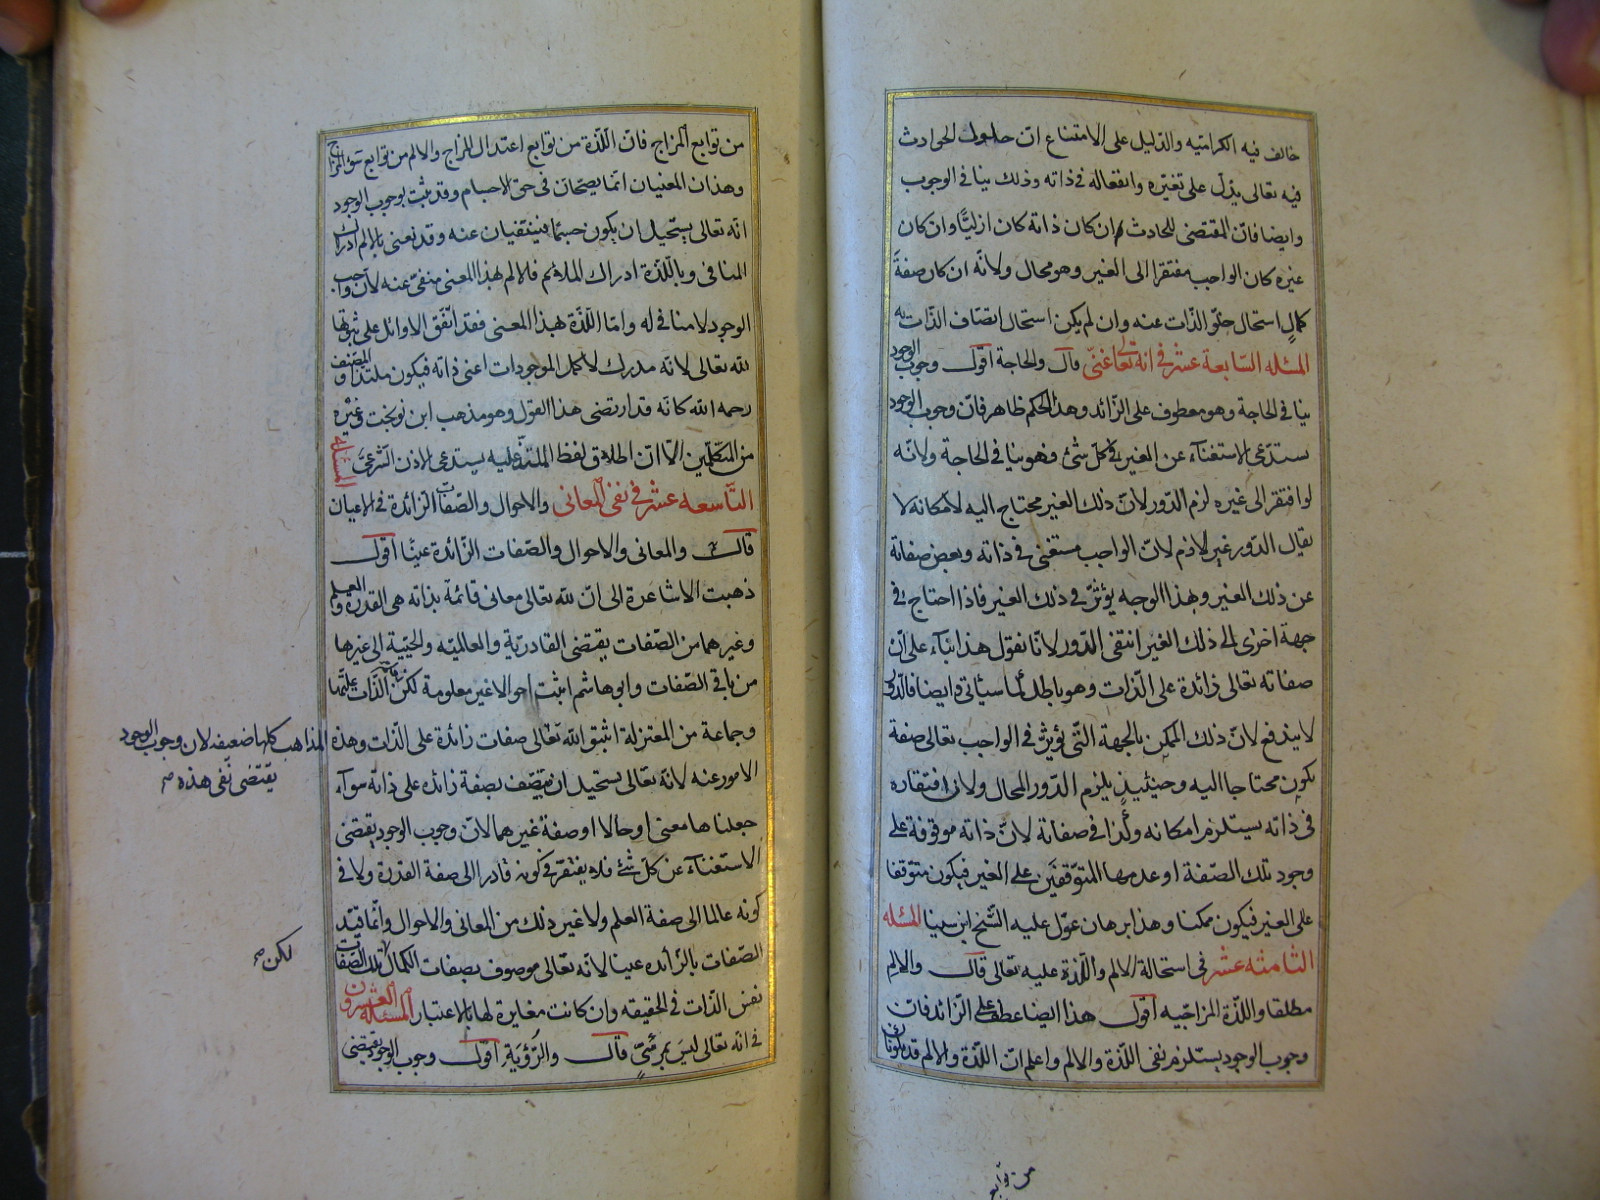 خالف فيه الكراميّه والدّليل على الامتناع انّ حلول الحوادث
فيه تعالى يدلّ على تغيّره وانفعاله فى ذاته وذلك ينافى الوجوب
وايضا فانّ المقتضى للحادث ان كان ذاته كان ازليّا وان كان
غيره كان الواجب مفتقرا الى الغير وهو محال ولانّه ان كان صفة
كمال استحال خلوّ الذّات عنه وان لم يكن استحال اتصاف الذّات به
المسئله السّابعة عشر فى انّه تعالى غنىّ قال والحاجة اقول وجوب الوجود
ينافى الحاجة وهو معطوف على الزّائد وهذا الحكم ظاهر فانّ وجوب الوجود
يستدعى الاستغنآء عن الغير فى كلّ شئ فهو ينافى الحاجة ولانّه
لو افتقر الى غيره لزم الدّور لانّ ذلك الغير محتاج اليه لامكانه لا
يقال الدّور غير لازم لانّ الواجب مستغنى فى ذاته وبعض صفاته
عن ذلك الغير وبهذا الوجه يؤثّر فى ذلك الغير فاذا احتاج فى
جهة اخرى الى ذلك الغير انتفى الدّور لانّا نقول هذا بنآء على انّ
صفاته تعالى زائدة على الذّات وهو باطل لما سيأتى وايضا فالدّور
لا يندفع لانّ ذلك الممكن بالجهة التّى يؤثّر فى الواجب تعالى صفة
يكون محتاجا اليه وحينئيذ يلزم الدّور المحال ولانّ افتقاره
فى ذاته يستلزم امكانه وكذا فى صفاته لانّ ذاته موقوفة على
وجود تلك الصّفة او عدمها المتوّقفين على الغير فيكون متوّقفا
على الغير فيكون ممكنا وهذا برهان عوّل عليه الشّيخ ابن سينا المسئله
الثامنه عشر فى استحالة الالم واللّذة عليه تعالى قال والالم
مطلقا واللّذة المزاجيّه اقول هذا ايضا عطف على الزّائد فانّ
وجوب الوجود يستلزم نفى اللّذة والالم واعلم انّ اللّذة والالم قد يكونان
من توابع
من توابع المزاج فانّ اللّذة من توابع اعتدال المزاج والالم من توابع سوء المزاج
وهذان المعنيان انّما يصحّان فى حقّ الاجسام وقد ثبت بوجوب الوجود
انّه تعالى يستحيل ان يكون جسما فينتفيان عنه وقد نعنى بالالم ادراك
المنافى وباللّذة ادراك الملائم فالالم بهذا المعنى منفىّ عنه لانّ واجب
الوجود لا منافى له وامّا اللّذة بهذا المعنى فقد اتّفق الاوائل على ثبوتها
لله تعالى لانّه مدرك لاكمل الموجودات اعنى ذاته فيكون ملتذّا والمصّنف
رحمه الله كانّه قد ارتضى هذا القول وهو مذهب ابن نوبخت وغيره
من المتكلّمين الّا انّ اطلاق لفظ الملتذّ عليه يستدعى الاذن الشّرعىّ المسئلة
التّاسعه عشر فى نفى المعانى والاحوال والصّفات الزّائدة فى الاعيان
قال والمعانى والاحوال والصّفات الزّائدة عينا اقول
ذهبت الاشاعرة الى انّ لله تعالى معانى قائمة بذاته هى القدرة والعلم
وغيرهما من الصّفات يقتضى القادريّة والعالميّه والحيّية الى غيرها
من باقى الصّفات وابو هاشم اثبت احوالا غير معلومة لكن الذّات عليها
وجماعة من المعتزلة اثبتوا لله تعالى صفات زائدة على الذّات وهذه المذاهب كلها ضعيفه لان وجوب الوجود
يقتضى نفى هذه
الامور عنه لانّه تعالى يستحيل ان يتّصف بصفة زائده على ذاته سوآء
جعلناها معنى او حالا او صفة غيرهما لانّ وجوب الوجود يقتضى
الاستغنآء عن كلّ شئ فلا يفتقر فى كونه قادرا الى صفة القدرة ولا فى
كونه عالما الى صفة العلم ولا غير ذلك من المعانى والاحوال وانّما قيّد
الصّفات بالزّائده عينا لانّه تعالى موصوف بصفات الكمال تلك الصّفات
لكن
نفس الذّات فى الحقيقه وان كانت مغايرة لها بالاعتبار المسئلة العشرون
فى انّه تعالى ليس بمرئىّ قال والرّؤية اقول وجوب الوجود يقتضى